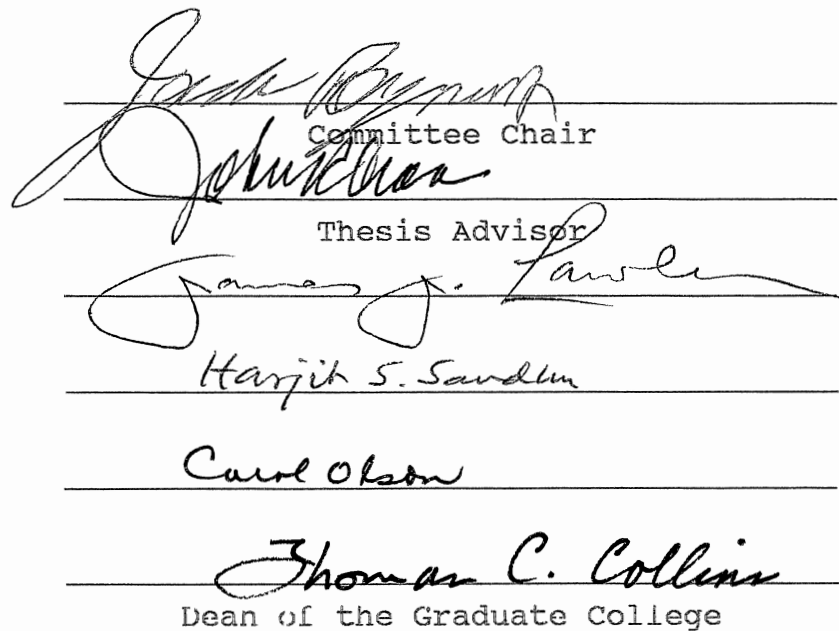 Jack Bynum
Committee Chair
Thesis Advisor
James J.
Harjit S. Sandhu
Carol Olson
Thomas C. Collins
Dean of the Graduate College